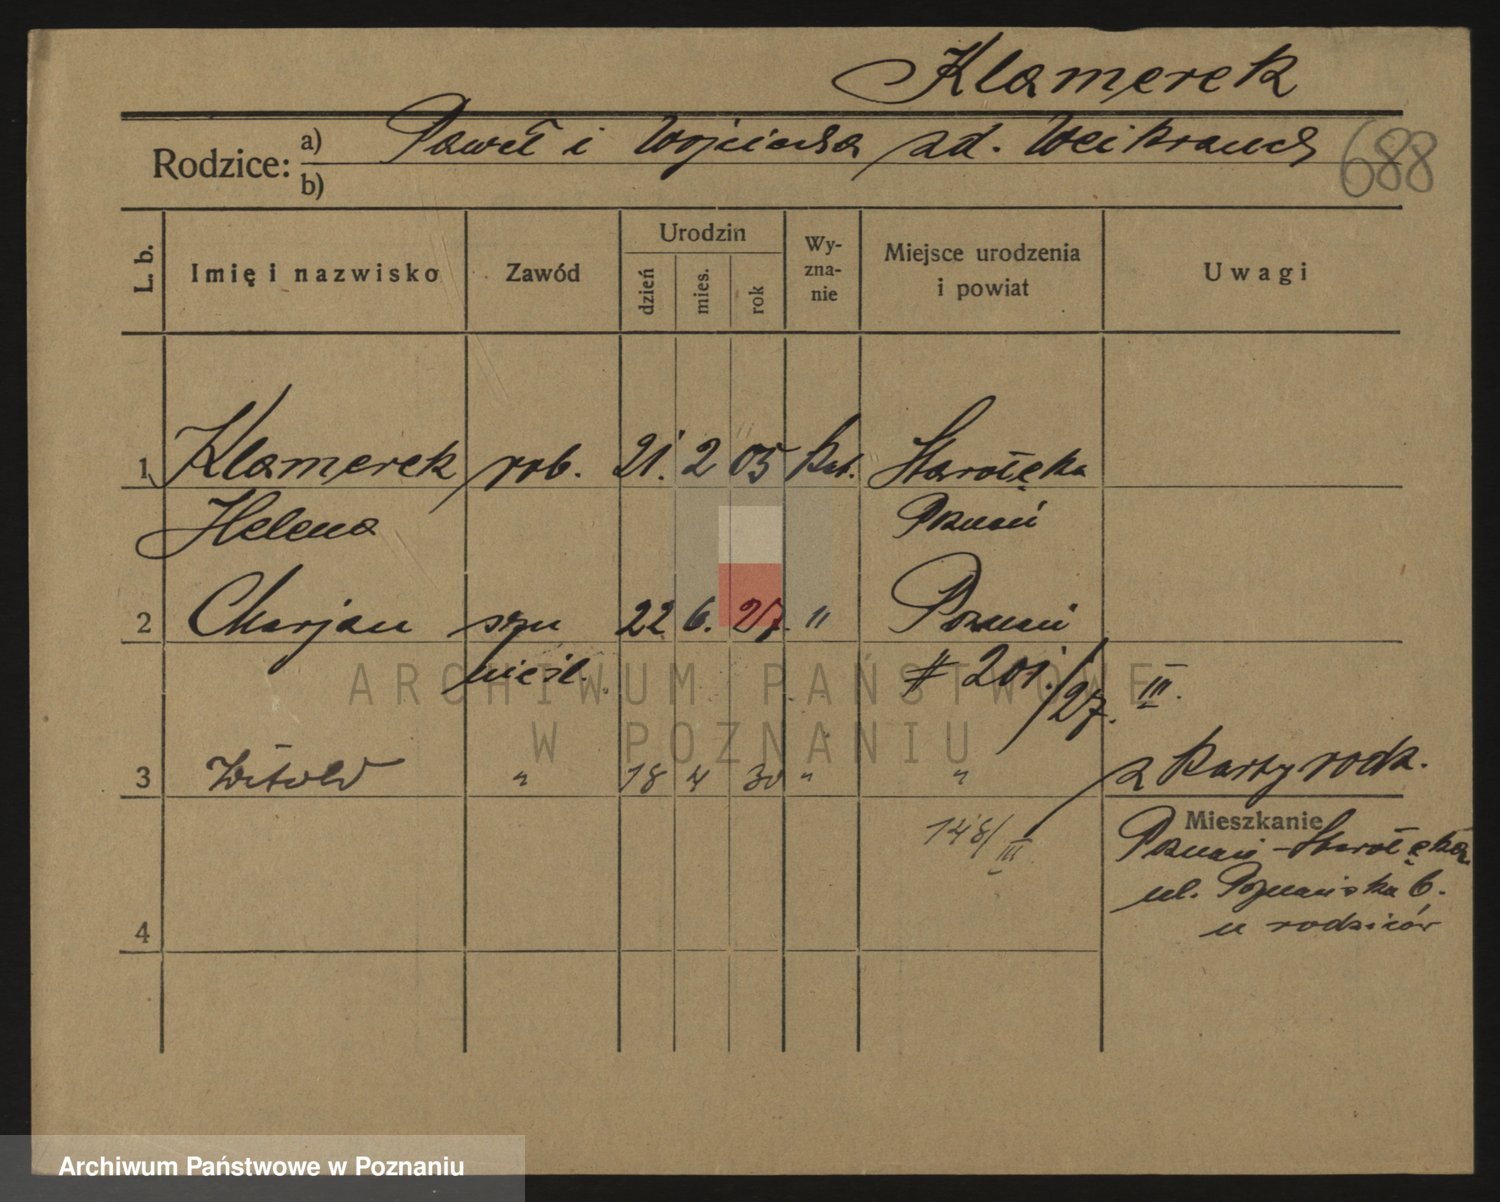 Klamerek
Rodzice: a) Paweł i zd. Weikrauch
b)
688
L. b.
Imię i nazwisko
Zawód
Urodzin
dzień
mies.
rok
Wy-
zna-
nie
Miejsce urodzenia
i powiat
Uwagi
1 Klamerek rob. 21. 2 05 kat. Starołęka
Helena Poznań
2 Marjan syn 22 6. 27. " Poznań
nieśl. # 201./27. III.
3 Witold " 18 4 30 " " z karty rodz.
148/III
Mieszkanie
Poznań - Starołęka
ul. Poznańska 6.
u rodziców
4
ARCHIWUM PAŃSTWOWE
W POZNANIU
Archiwum Państwowe w Poznaniu